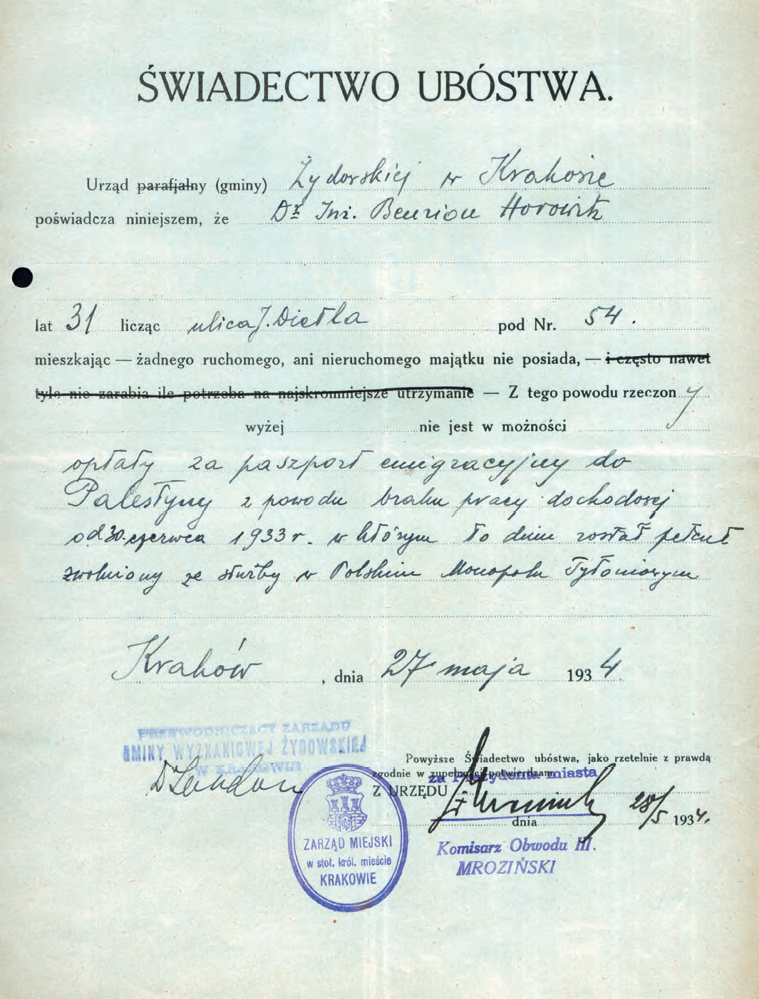 ŚWIADECTWO UBÓSTWA.
Urząd parafjalny (gminy) Żydowskiej w Krakowie
poświadcza niniejszem, że Dr Inż. Benzion Horowitz
lat 31 licząc ulica J. Dietla pod Nr. 54.
mieszkając — żadnego ruchomego, ani nieruchomego majątku nie posiada, — i często nawet
tyle nie zarabia ile potrzeba na najskromniejsze utrzymanie — Z tego powodu rzeczony
wyżej nie jest w możności
opłaty za paszport emigracyjny do
Palestyny z powodu braku pracy dochodowej
od 30. czerwca 1933 r. w którym to dniu został petent
zwolniony ze służby w Polskim Monopolu Tytoniowym
Kraków, dnia 27 maja 1934.
PRZEWODNICZĄCY ZARZĄDU
GMINY WYZNANIOWEJ ŻYDOWSKIEJ
W KRAKOWIE
Dr Landau
Powyższe Świadectwo ubóstwa, jako rzetelnie z prawdą
zgodnie w zupełności potwierdzam
za Prezydenta miasta
Z URZĘDU
dnia 28/5 1934.
Komisarz Obwodu III.
MROZIŃSKI
ZARZĄD MIEJSKI
w stoł. król. mieście
KRAKOWIE